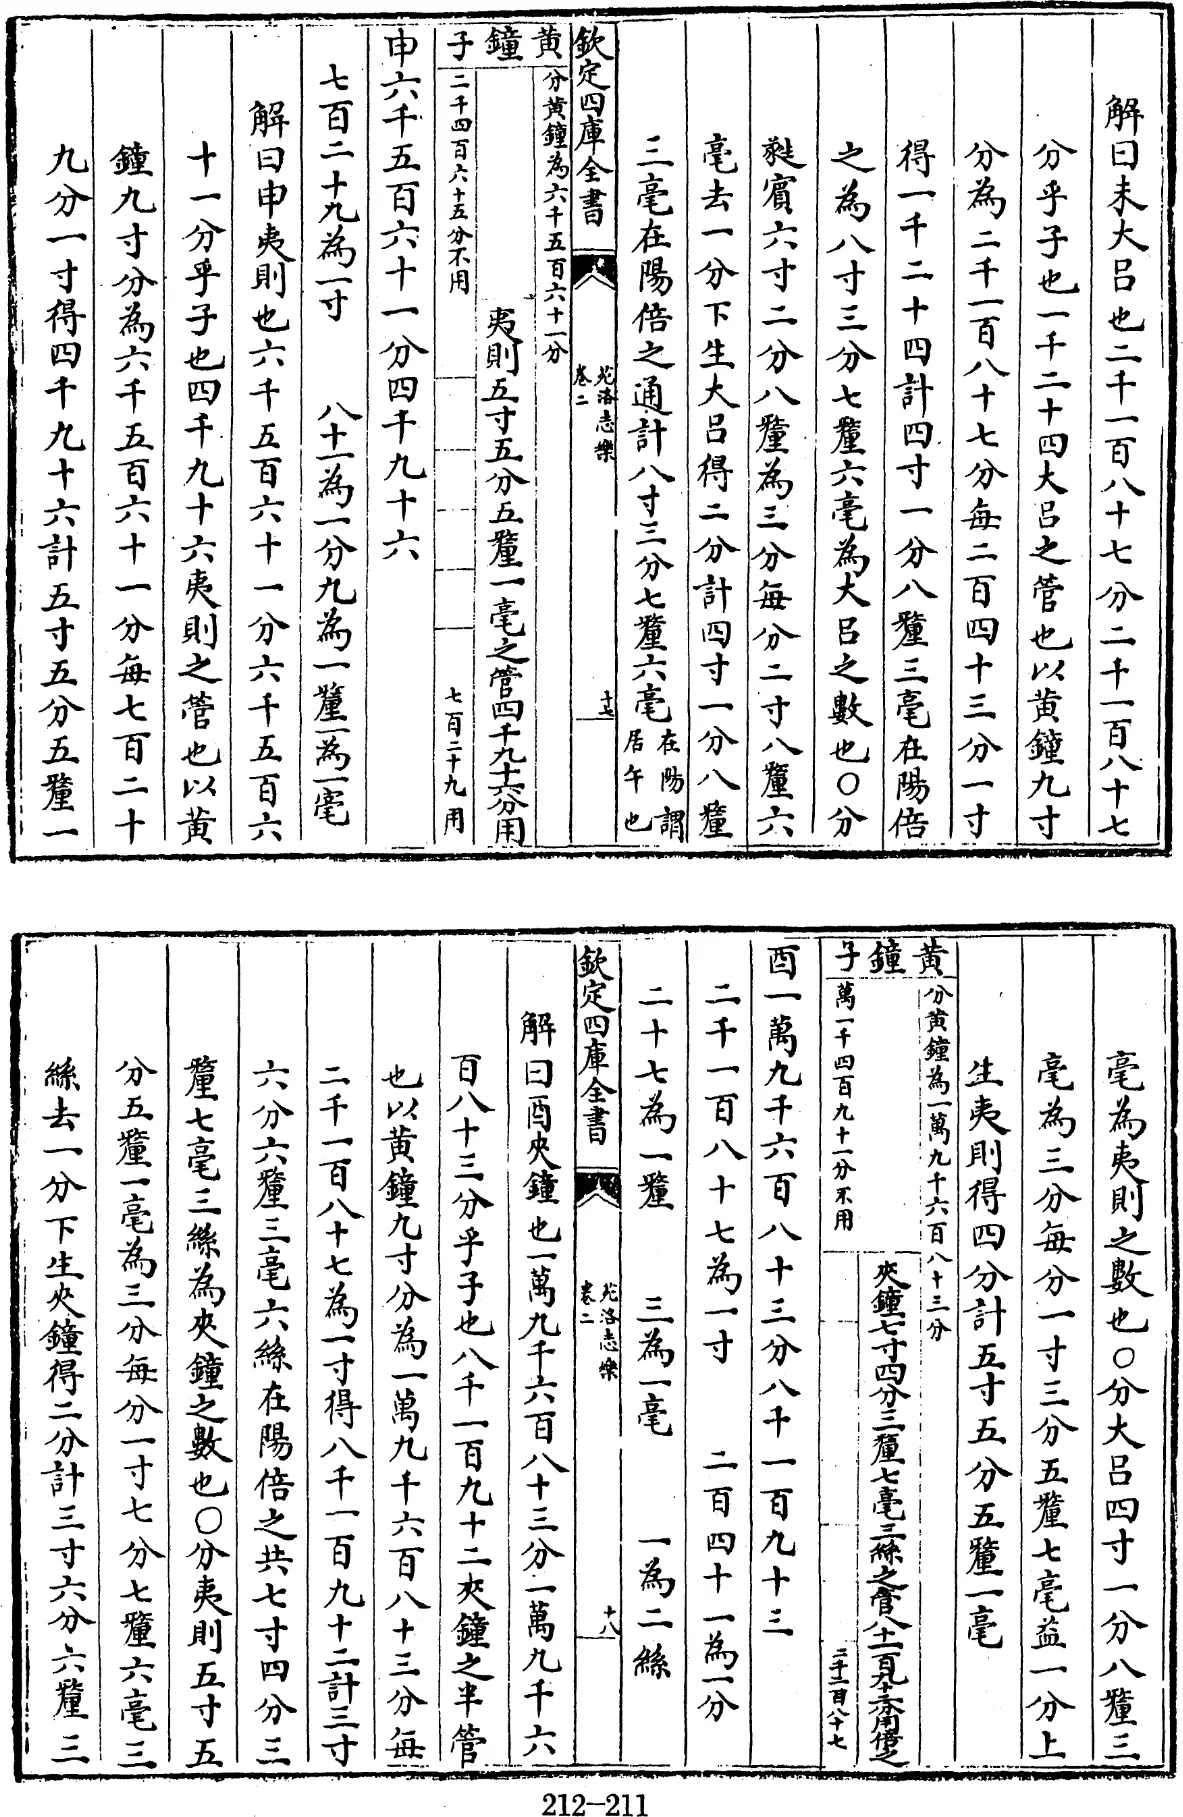 解曰未大呂也二千一百八十七分二千一百八十七
分乎子也一千二十四大呂之管也以黄鐘九寸
分為二千一百八十七分每二百四十三分一寸
得一千二十四計四寸一分八釐三毫在陽倍
之為八寸三分七釐六毫為大呂之數也○分
蕤賓六寸二分八釐為三分每分二寸八釐六
毫去一分下生大呂得二分計四寸一分八釐
三毫在陽倍之通計八寸三分七釐六毫在陽謂居午也
欽定四庫全書
苑洛志樂
卷二
十七
黄鐘子
分黄鐘為六千五百六十一分
夷則五寸五分五釐一毫之管四千九十六分用
二千四百六十五分不用
七百二十九用
申六千五百六十一分四千九十六
七百二十九為一寸 八十一為一分九為一釐一為一毫
解曰申夷則也六千五百六十一分六千五百六
十一分乎子也四千九十六夷則之管也以黄
鐘九寸分為六千五百六十一分每七百二十
九分一寸得四千九十六計五寸五分五釐一
毫為夷則之數也○分大呂四寸一分八釐三
毫為三分每分一寸三分五釐七毫益一分上
生夷則得四分計五寸五分五釐一毫
黄鐘子
分黄鐘為一萬九千六百八十三分
夾鐘七寸四分三釐七毫三絲之管八千一百九十二分用倍之
萬一千四百九十一分不用
二千一百八十七
酉一萬九千六百八十三分八千一百九十三
二千一百八十七為一寸 二百四十一為一分
二十七為一釐 三為一毫 一為二絲
欽定四庫全書
苑洛志樂
卷二
十八
解曰酉夾鐘也一萬九千六百八十三分一萬九千六
百八十三分乎子也八千一百九十二夾鐘之半管
也以黄鐘九寸分為一萬九千六百八十三分每
二千一百八十七為一寸得八千一百九十二計三寸
六分六釐三毫六絲在陽倍之共七寸四分三
釐七毫三絲為夾鐘之數也○分夷則五寸五
分五釐一毫為三分每分一寸七分七釐六毫三
絲去一分下生夾鐘得二分計三寸六分六釐三
212-211